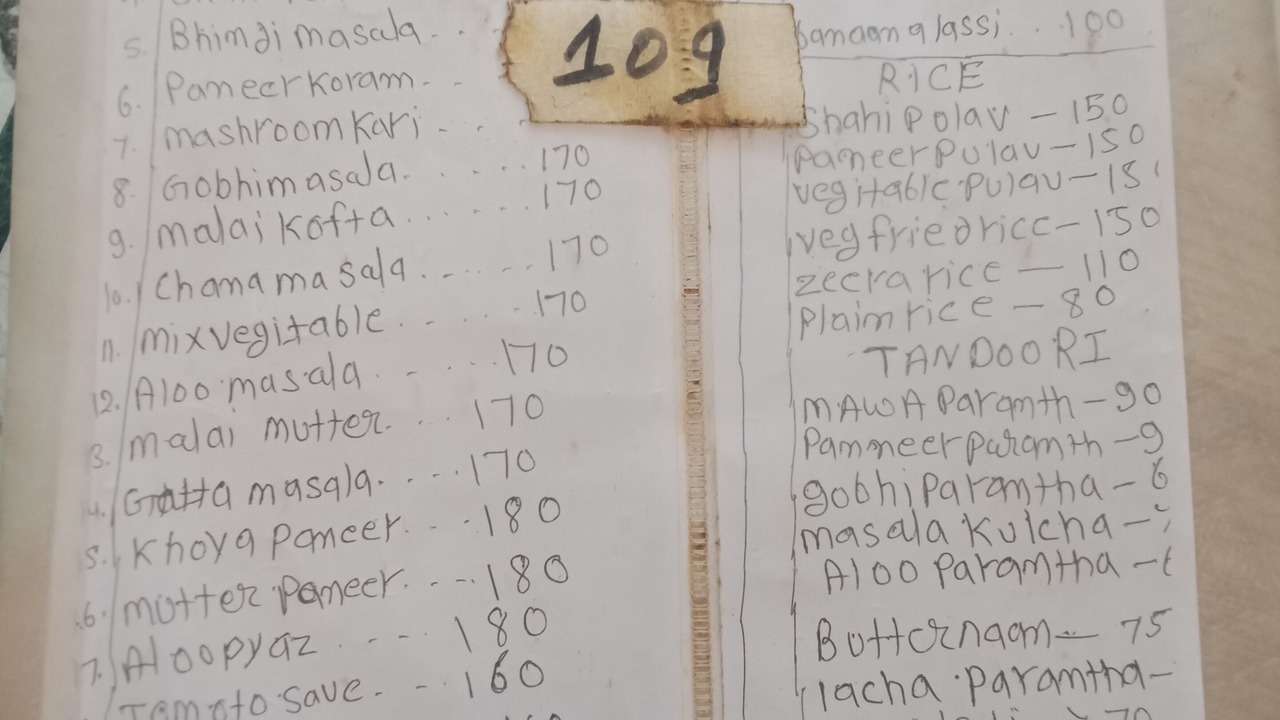 109
5. Bhindi masala
6. Paneer Koram
7. mashroom Kari
8. Gobhi masala 170
9. malai Kofta 170
10. Chana masala 170
11. mix vegitable 170
12. Aloo masala 170
3. malai mutter 170
4. Gatta masala 170
5. Khoya Paneer 180
6. mutter Paneer 180
7. Aloo pyaz 180
Tamoto save 160
banaana lassi 100
RICE
Shahi Polav - 150
Paneer Pulav - 150
vegitable Pulav - 15
veg fried rice - 150
zeera rice - 110
Plain rice - 80
TANDOORI
MAWA Paranth - 90
Panneer Paranth - 9
gobhi Parantha - 6
masala Kulcha -
Aloo Parantha -
Butter naan - 75
lacha Parantha -
70